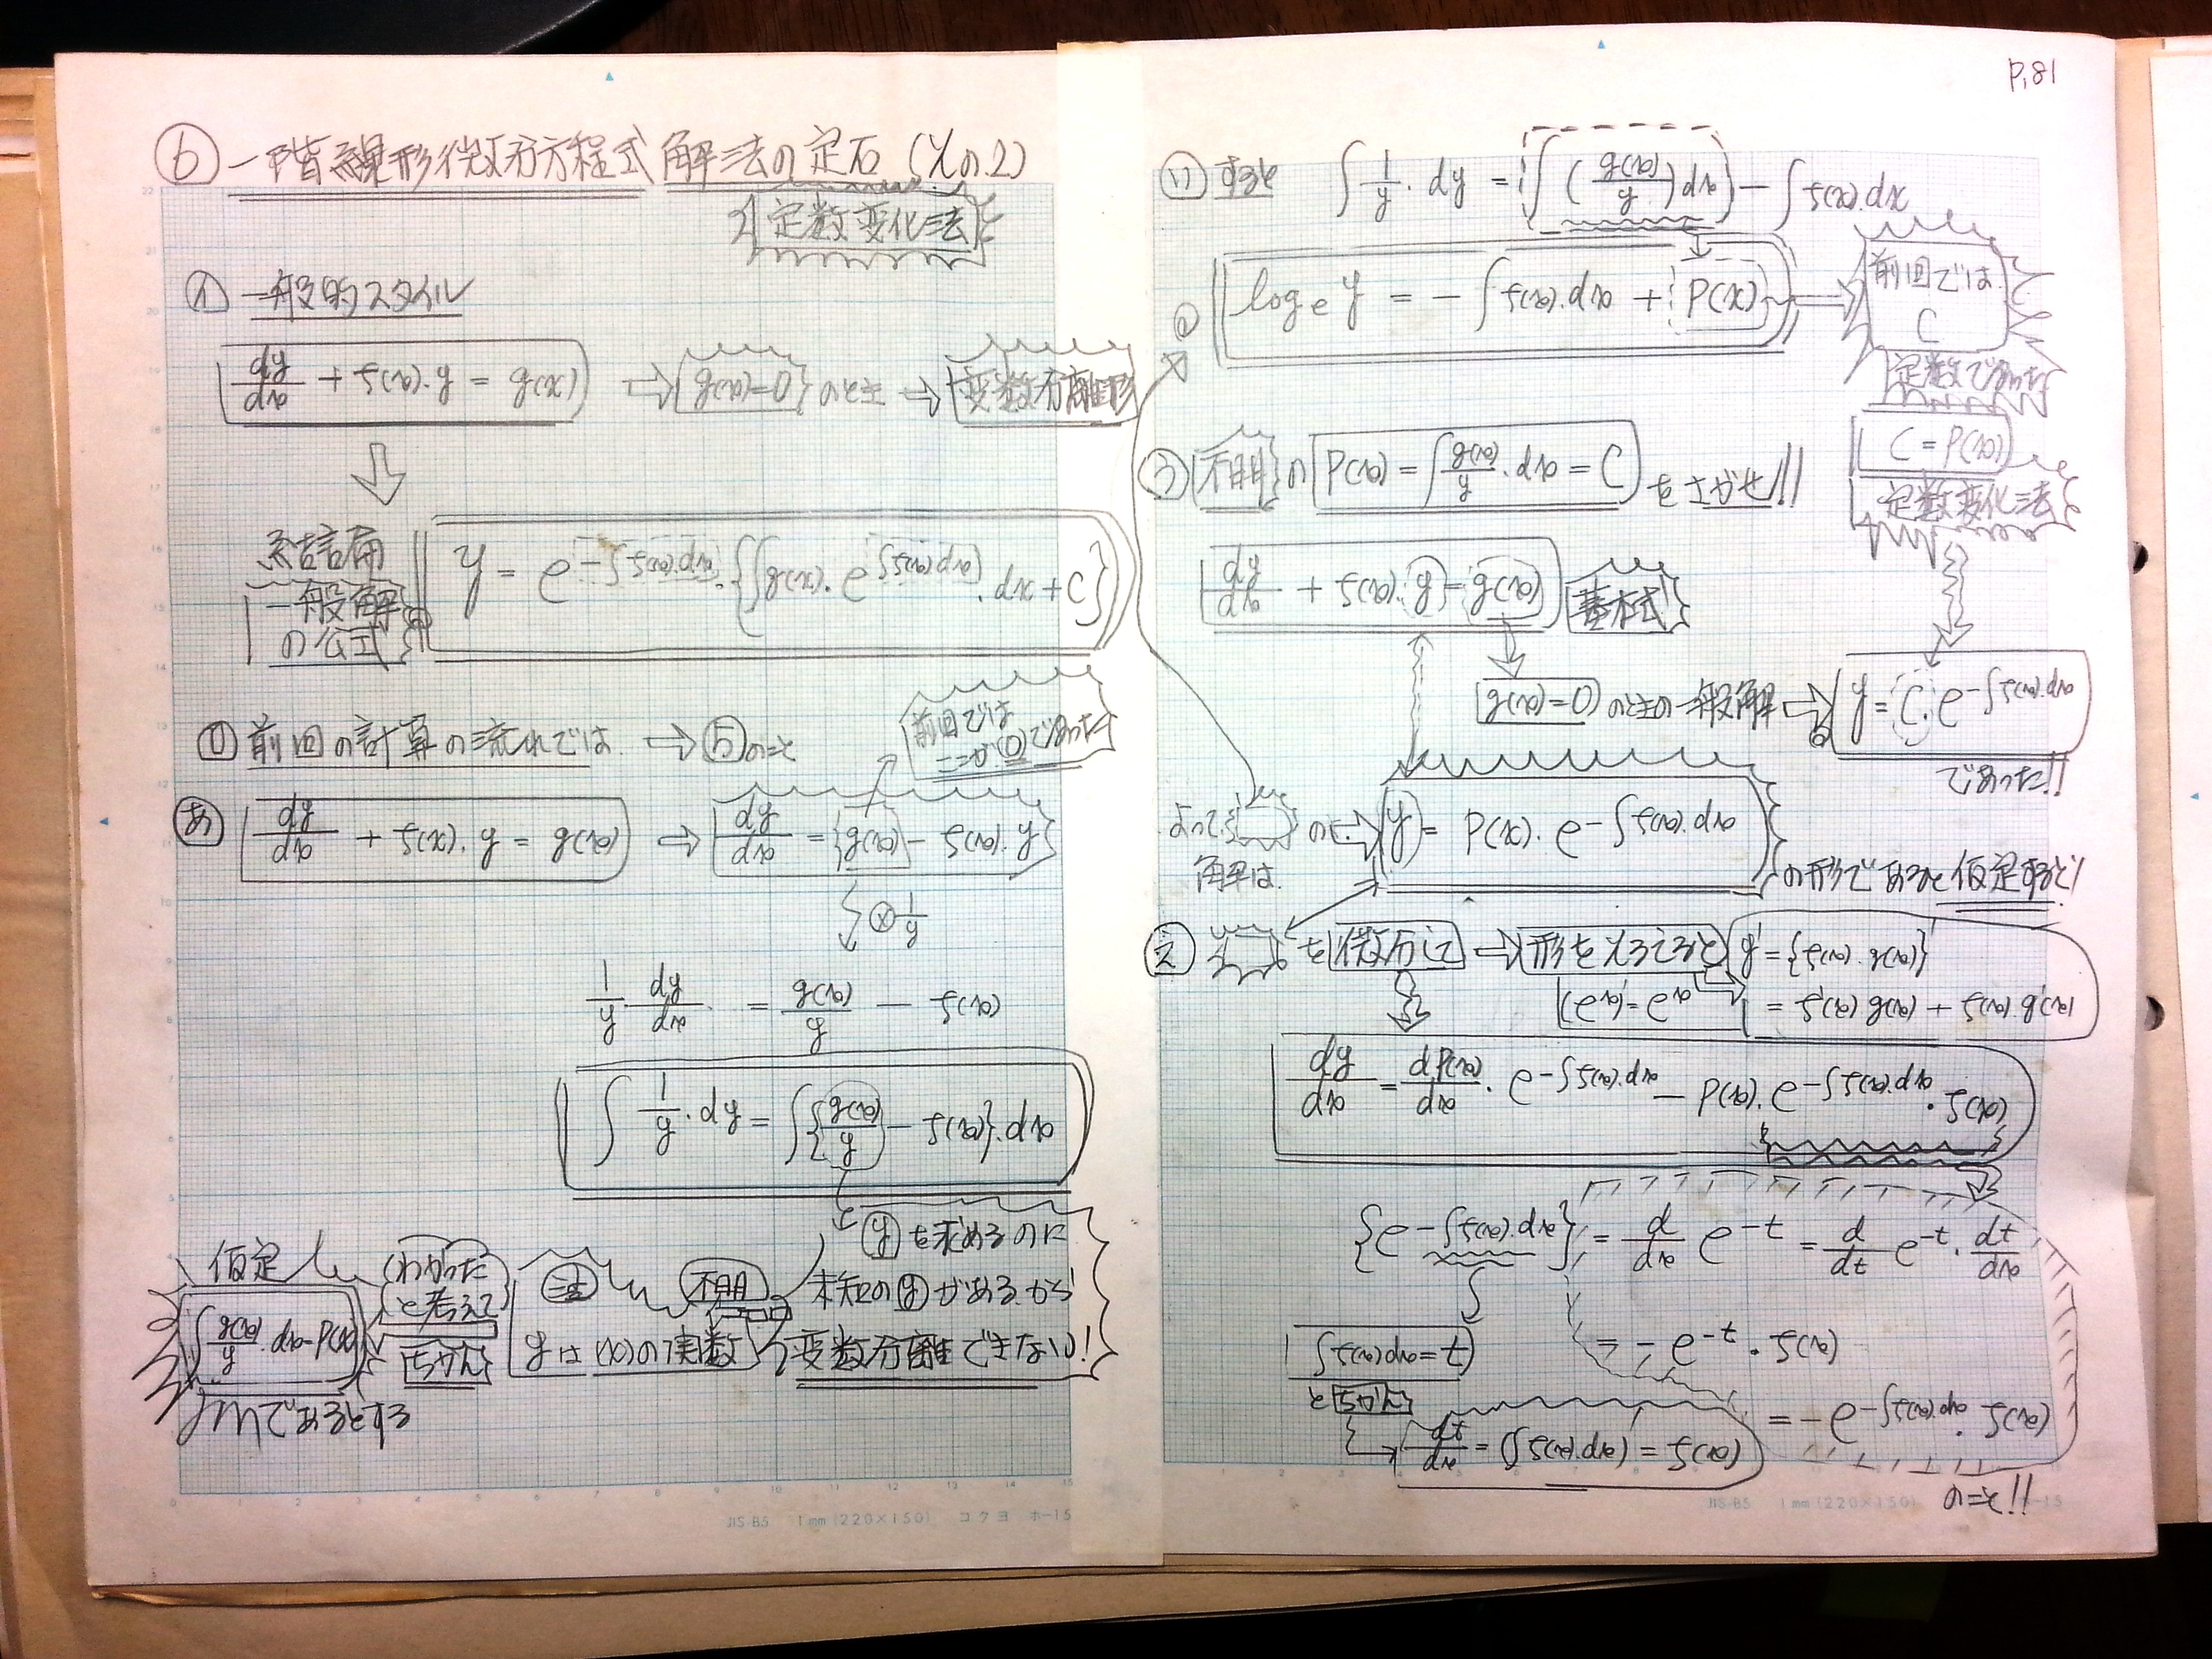 ⑥ 一階線形微分方程式 解法の定石 (その2)
定数変化法
㋑ 一般的スタイル
dy/dx + f(x)・y = g(x) ⇒ g(x)=0 のとき ⇒ 変数分離形
結局
一般解の公式
y = e^{-∫f(x)・dx}・{∫g(x)・e^{∫f(x)dx}・dx + C}
㋺ 前回の計算の流れでは → ⑤のこと
前回では
ここが(0)であった
あ dy/dx + f(x)・y = g(x) → dy/dx = {g(x) - f(x)・y}
⊗ 1/y
1/y dy/dx = g(x)/y - f(x)
∫ 1/y・dy = ∫{g(x)/y - f(x)}・dx
yを求めるのに
未知のyがあるから
変数分離できない!
注 不明
yは(x)の実数
わかった
と考えて
ちかん
仮定
∫g(x)/y・dx=P(x)
であるとする
P,81
い すると ∫1/y・dy = ∫(g(x)/y)dx - ∫f(x)・dx
log e y = - ∫f(x)・dx + P(x)
前回では
C
定数であった
C = P(x)
定数変化法
う 不明 の P(x) = ∫g(x)/y・dx = C をさがせ!!
dy/dx + f(x)・y = g(x) 基本式
g(x)=0 のときの一般解 ⇒ y = C・e^{-∫f(x)・dx}
であった!!
よって の ⇒ y = P(x)・e^{-∫f(x)・dx}
解は
の形であると仮定すると!
え を微分して → 形をそろえると y' = {f(x)・g(x)}'
(e^x)' = e^x = f'(x) g(x) + f(x)・g'(x)
dy/dx = dP(x)/dx・e^{-∫f(x)・dx} - P(x)・e^{-∫f(x)・dx}・f(x)
{e^{-∫f(x)・dx}}' = d/dx e^{-t} = d/dt e^{-t}・dt/dx
∫f(x)dx = t
= - e^{-t}・f(x)
とちかん
dt/dx = (∫f(x)・dx)' = f(x)
= - e^{-∫f(x)・dx}・f(x)
のこと!!
JIS-B5 1mm (220×150) コクヨ ホ-15
JIS-B5 1mm (220×150) ホ-15